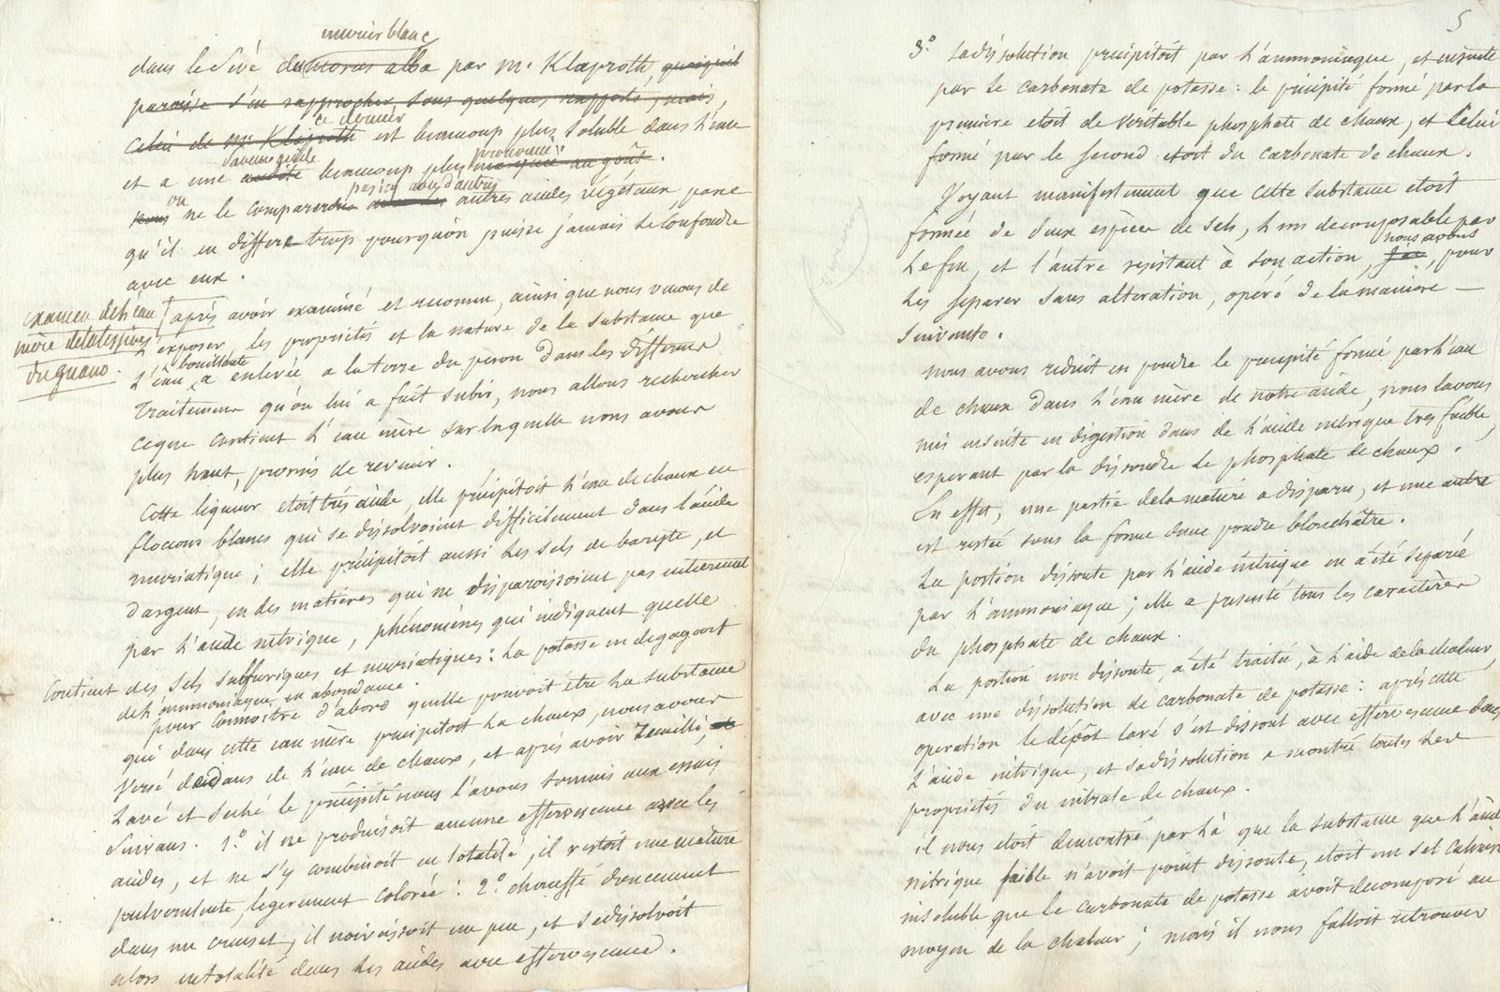 murier blanc
dans le Sivé du morus alba par mr. Klaproth, quoiqu'il
paraisse s'en rapprocher, sous quelques rapports, mais
ce dernier
celui de mr. Klaproth est beaucoup plus soluble dans l'eau
saveur acide prononcée
et a une acidité beaucoup plus marquée au goût.
on pas ici avec d'autres
nous ne le comparerons autres acides végétaux, parce
qu'il en differe trop pourqu'on puisse jamais le confondre
avec eux.
examen de l'eau
mère de la lessive
du guano.
après avoir examiné et reconnu, ainsi que nous venons de
l'exposer, les propriétés et la nature de la substance que
bouillante
l'eau a enlevée a la terre du perou dans les différens
traitemens qu'on lui a fait subir, nous allons rechercher
ce que contient l'eau mère sur laquelle nous avons
plus haut, promis de revenir.
Cette liqueur etoit très acide, elle précipitoit l'eau de chaux en
flocons blancs qui se dissolvoient difficilement dans l'acide
muriatique; elle précipitoit aussi les sels de baryte, et
d'argent, en des matieres qui ne disparoissoient pas entierement
par l'acide nitrique, phénomènes qui indiquent qu'elle
contient des sels sulfuriques et muriatiques: la potasse en degageoit
de l'ammoniaque en abondance.
pour connoitre d'abord quelle pouvoit être la substance
qui dans cette eau mère precipitoit la chaux, nous avons
versé dedans de l'eau de chaux, et après avoir recueilli, et
lavé et seché le précipité nous l'avons soumis aux essais
suivans. 1.° il ne produisoit aucune effervescence avec les
acides, et ne s'y combinoit en totalité, il restoit une matiere
pulverulente, legerement colorée: 2.° chauffé doucement
dans un creuset, il noircissoit un peu, et se dissolvoit
alors en totalité dans les acides avec effervescence.
5
3.° sa dissolution precipitoit par l'ammoniaque, et ensuite
par le carbonate de potasse: le précipité formé par la
premiere etoit de véritable phosphate de chaux, et celui
formé par le second etoit du carbonate de chaux.
Voyant manifestement que cette substance etoit
formée de deux espèces de sels, l'un decomposable par
nous avons
le feu, et l'autre resistant à son action, j'ai, pour
les separer sans alteration, opéré de la maniere
suivante.
nous avons reduit en poudre le precipité formé par l'eau
de chaux dans l'eau mère de notre acide, nous l'avons
mis ensuite en digestion dans de l'acide nitrique tres faible,
esperant par la dissoudre le phosphate de chaux.
En effet, une partie de la matiere a disparu, et une autre
est restée sous la forme d'une poudre blanchâtre.
La portion dissoute par l'acide nitrique en a été separée
par l'ammoniaque; elle a presenté tous les caractères
du phosphate de chaux.
La portion non dissoute, a été traitée, à l'aide de la chaleur,
avec une dissolution de carbonate de potasse: après cette
operation le dépôt lavé s'est dissout avec effervescence dans
l'acide nitrique, et sa dissolution a montré toutes les
propriétés du nitrate de chaux.
il nous etoit demontré par là que la substance que l'acide
nitrique faible n'avoit point dissoute, etoit un sel calcaire
insoluble que le carbonate de potasse avoit decomposé au
moyen de la chaleur; mais il nous falloit retrouver